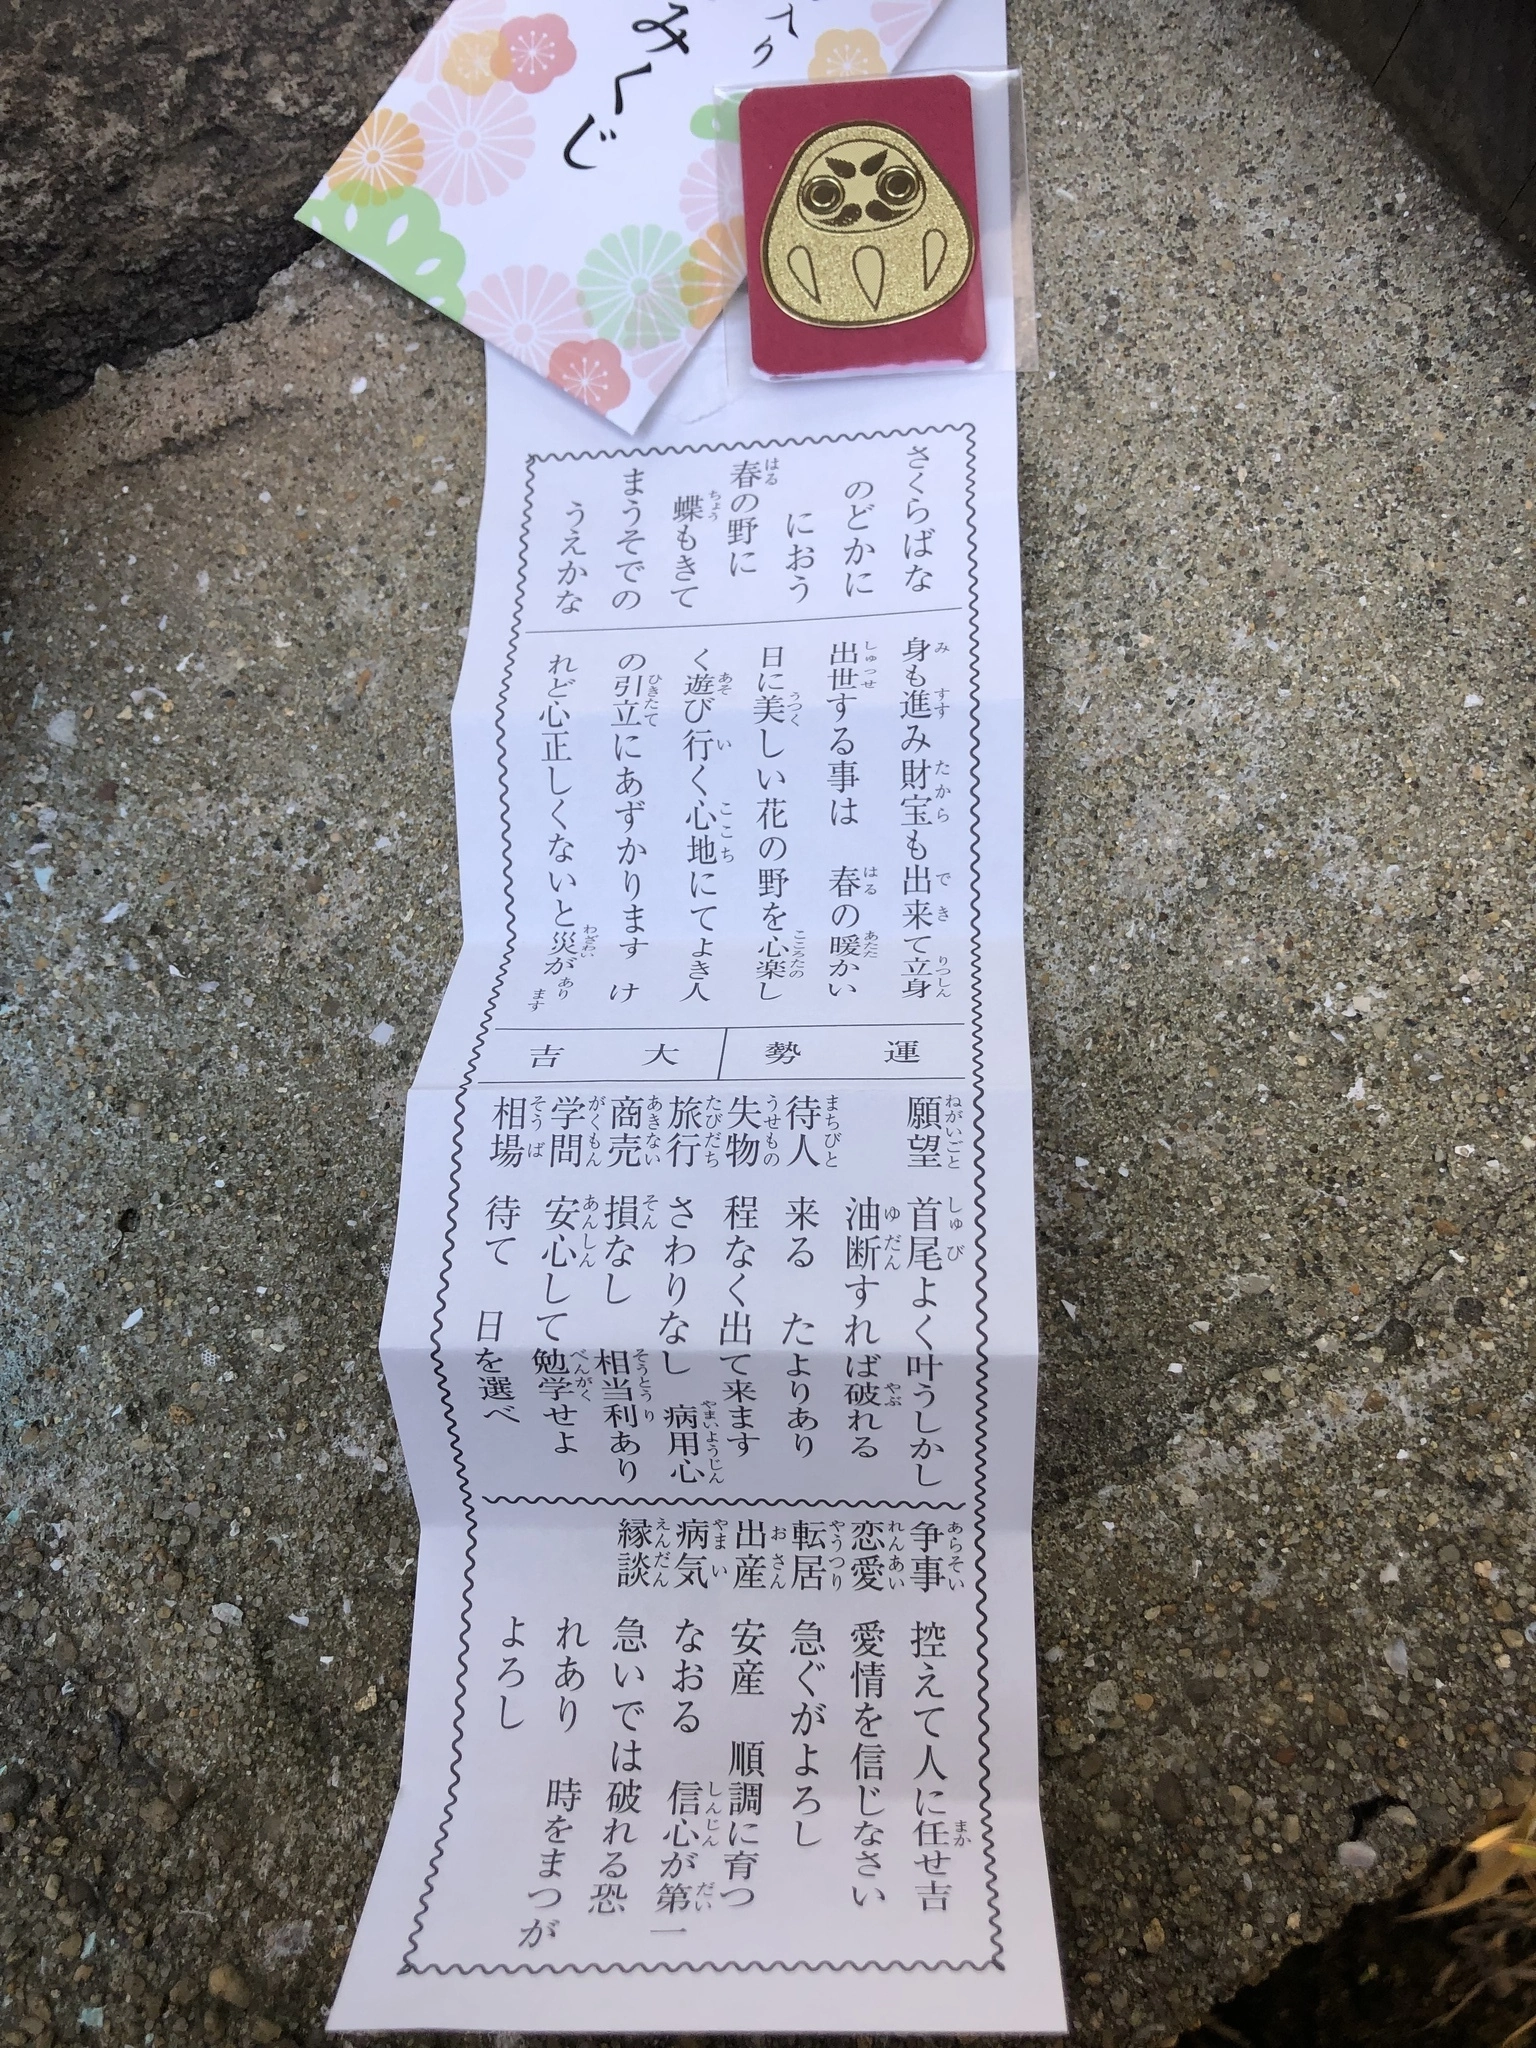 入り
みくじ
さくらばな
のどかに
におう
春の野に
蝶もきて
まうそでの
うえかな
身も進み財宝も出来て立身
出世する事は　春の暖かい
日に美しい花の野を心楽し
く遊び行く心地にてよき人
の引立にあずかります　け
れど心正しくないと災があります
運勢　大吉
願望　首尾よく叶うしかし
油断すれば破れる
待人　来る　たよりあり
失物　程なく出て来ます
旅行　さわりなし　病用心
商売　損なし　相当利あり
学問　安心して勉学せよ
相場　待て　日を選べ
争事　控えて人に任せ吉
恋愛　愛情を信じなさい
転居　急ぐがよろし
出産　安産　順調に育つ
病気　なおる　信心が第一
縁談　急いでは破れる恐
れあり　時をまつが
よろし